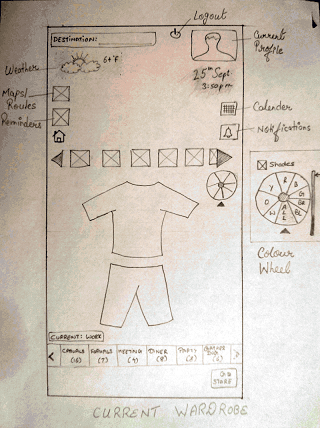 Logout
DESTINATION:
Current
Profile
Weather
64°F
25th Sept.
3:50pm
Maps/
Routes
Reminders
Calender
Notifications
Shades
R
B
G
Y
O
W
BL
A
L
L
Colour
Wheel
CURRENT: WORK
CASUALS
(16)
FORMALS
(7)
MEETING
(4)
DINER
(8)
PARTY
STORE
CURRENT WARDROBE